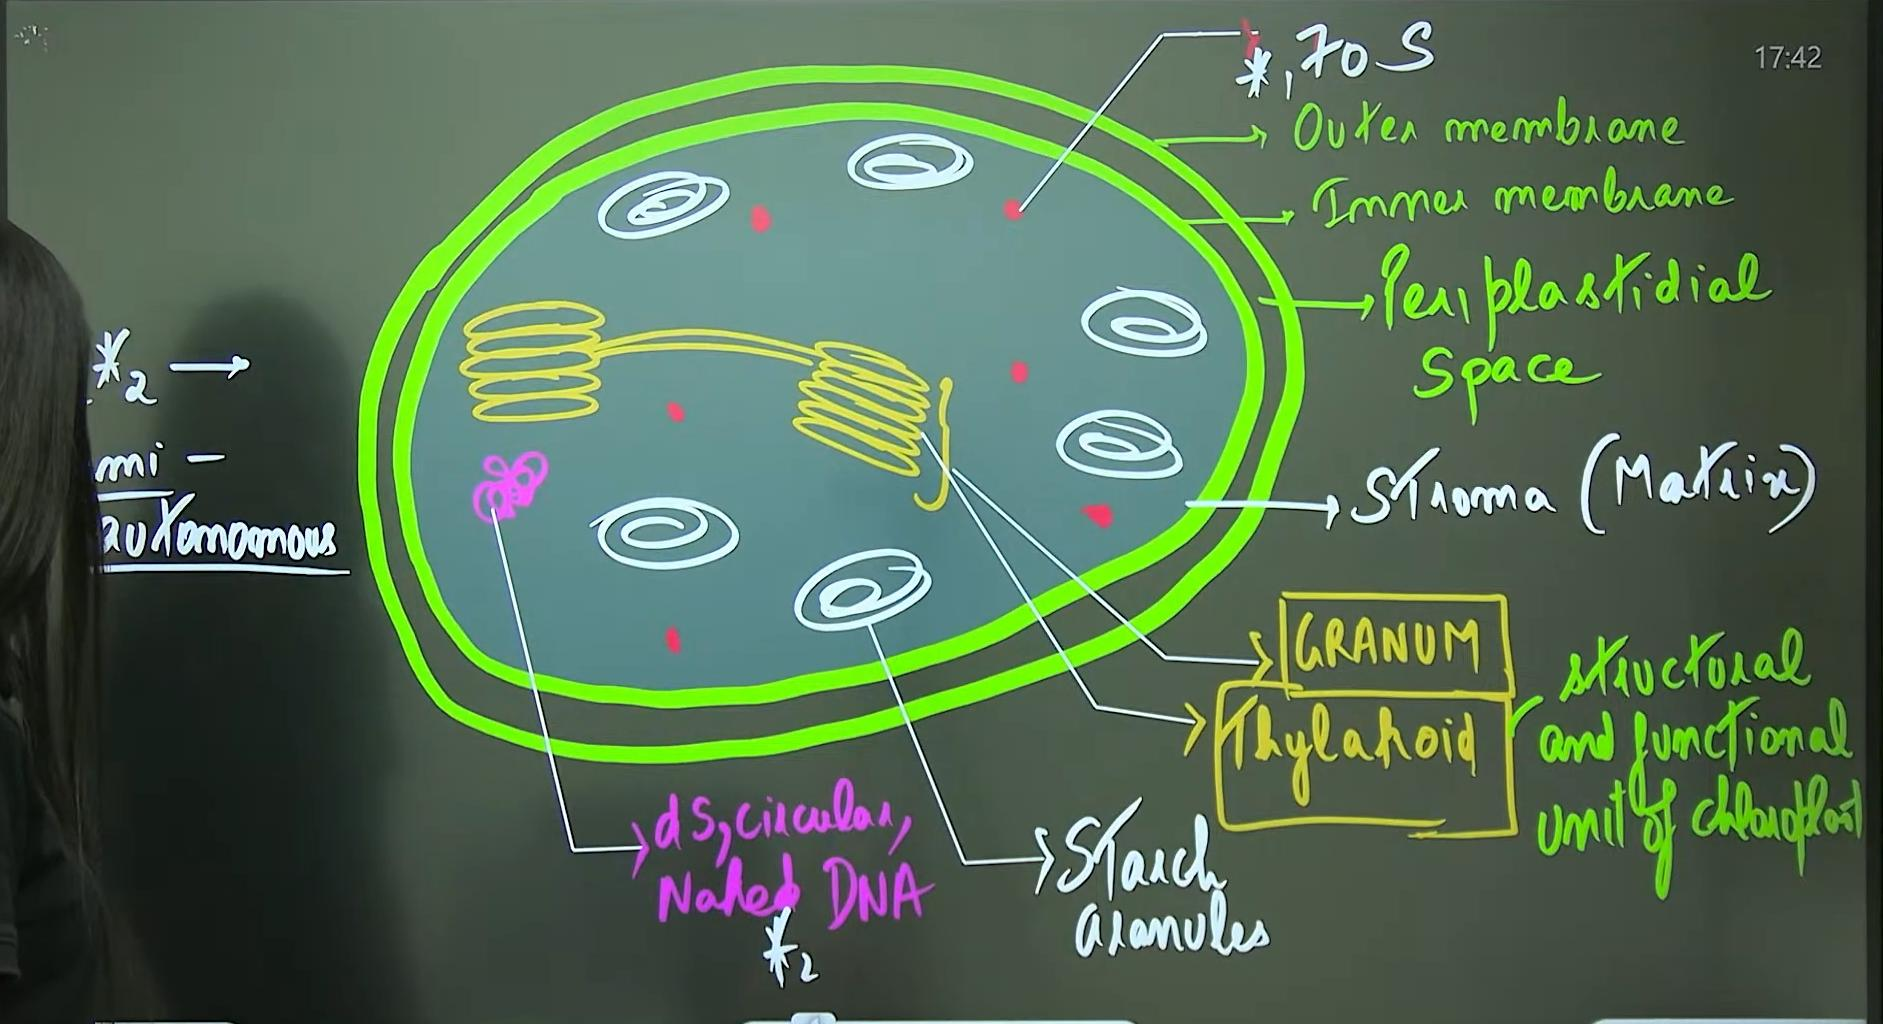 *1 70 S
17:42
Outer membrane
Inner membrane
Periplastidial
Space
*2 →
mi -
autonomous
Stroma (Matrix)
GRANUM
Thylakoid
structural
and functional
unit of chloroplast
ds, circular,
Naked DNA
*2
Starch
Granules